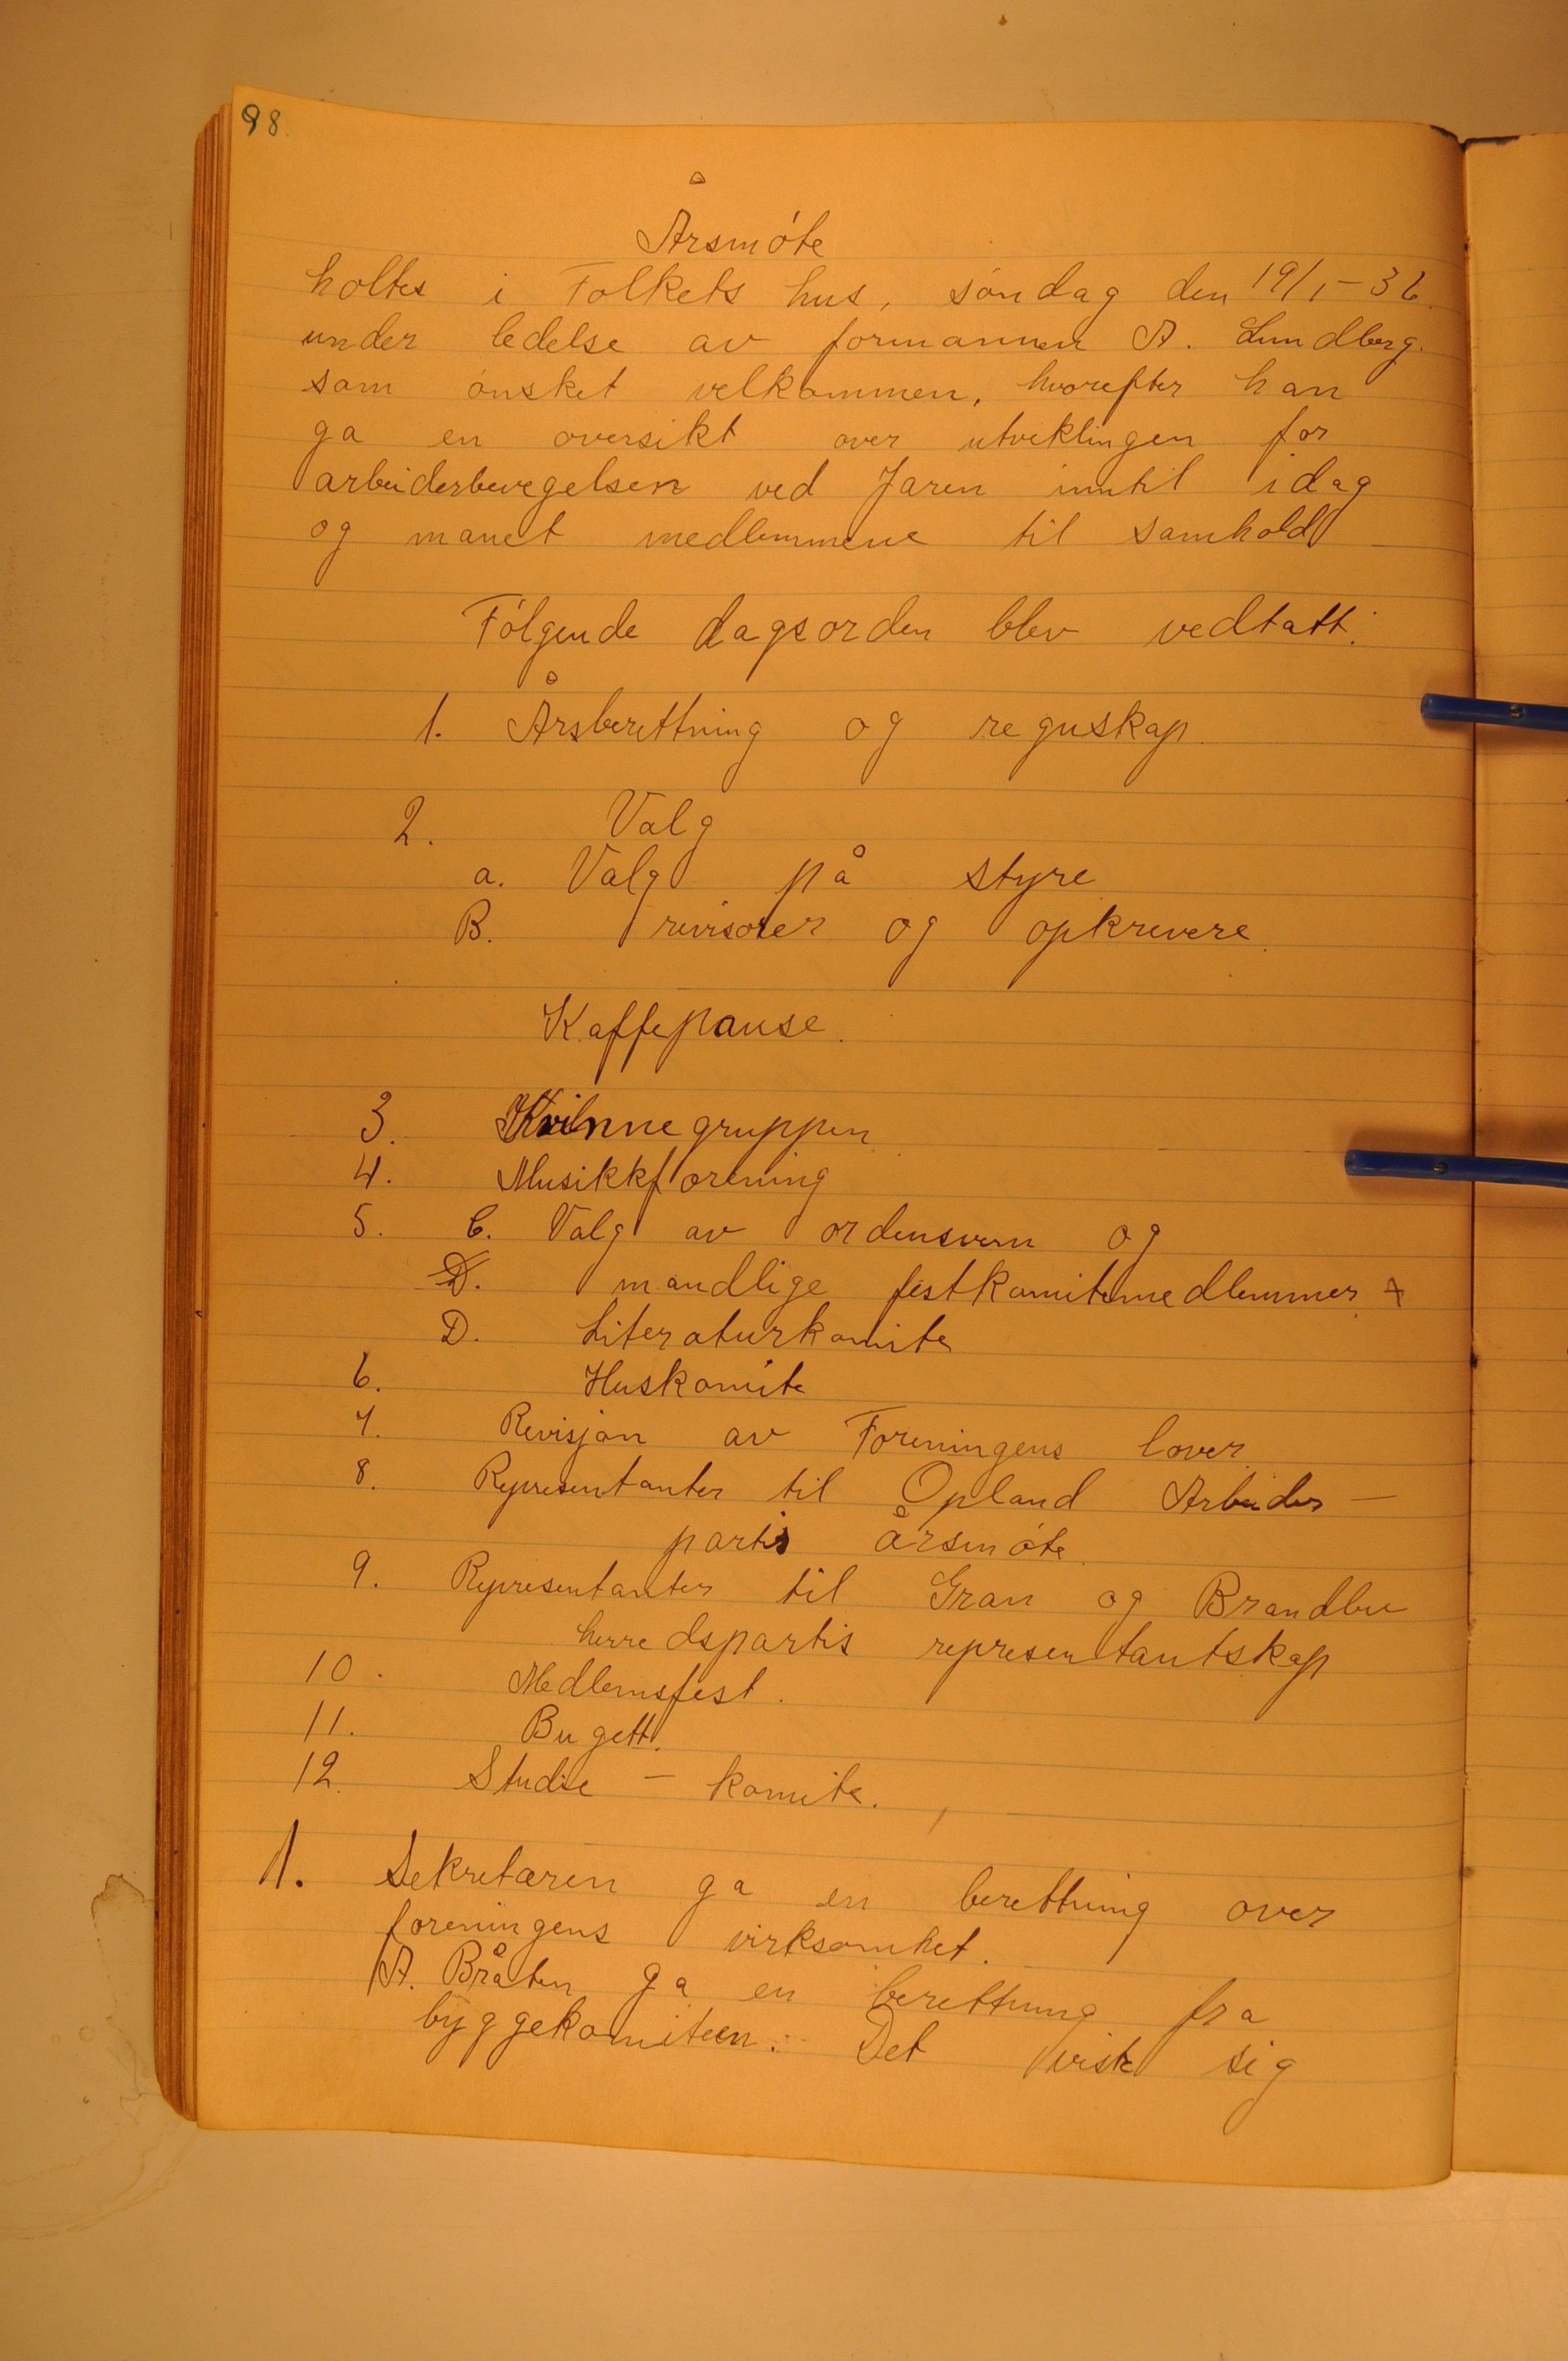 98.
Årsmóte
holtes i Folkets hus, söndag den 19/1-36.
under ledelse av formannen A. Lundberg.
som ónsket velkommen, hvorefter han
ga en oversikt over utveklingen for
arbeiderbevegelsen ved Jaren inntil idag
og manet medlemmene til samhold
Fólgende dagsorden blev vedtatt:
1. Årsberettning og reguskap
2. Valg
a. Valg på styre
B. revisorer og opkrevere.
Kaffepause.
3. Kvinnegruppen
4. Musikkforening
5. C. Valg av ordensvern og
D. mandlige festkomitemedlemmer
D. Literaturkomite
6. Huskomite
7. Revisjon av Foreningens lover.
8. Representanter til Opland Arbeider-
partis årsmóte.
9. Representanter til Gran og Brandbu
herredspartis representantskap
10. Medlemsfest.
11. Bugett.
12. Studie - komite.
1. Sekretæren ga en berettning over
foreningens virksomhet.
A. Bråten ga en berettning fra
byggekomiteen. Det viste sig